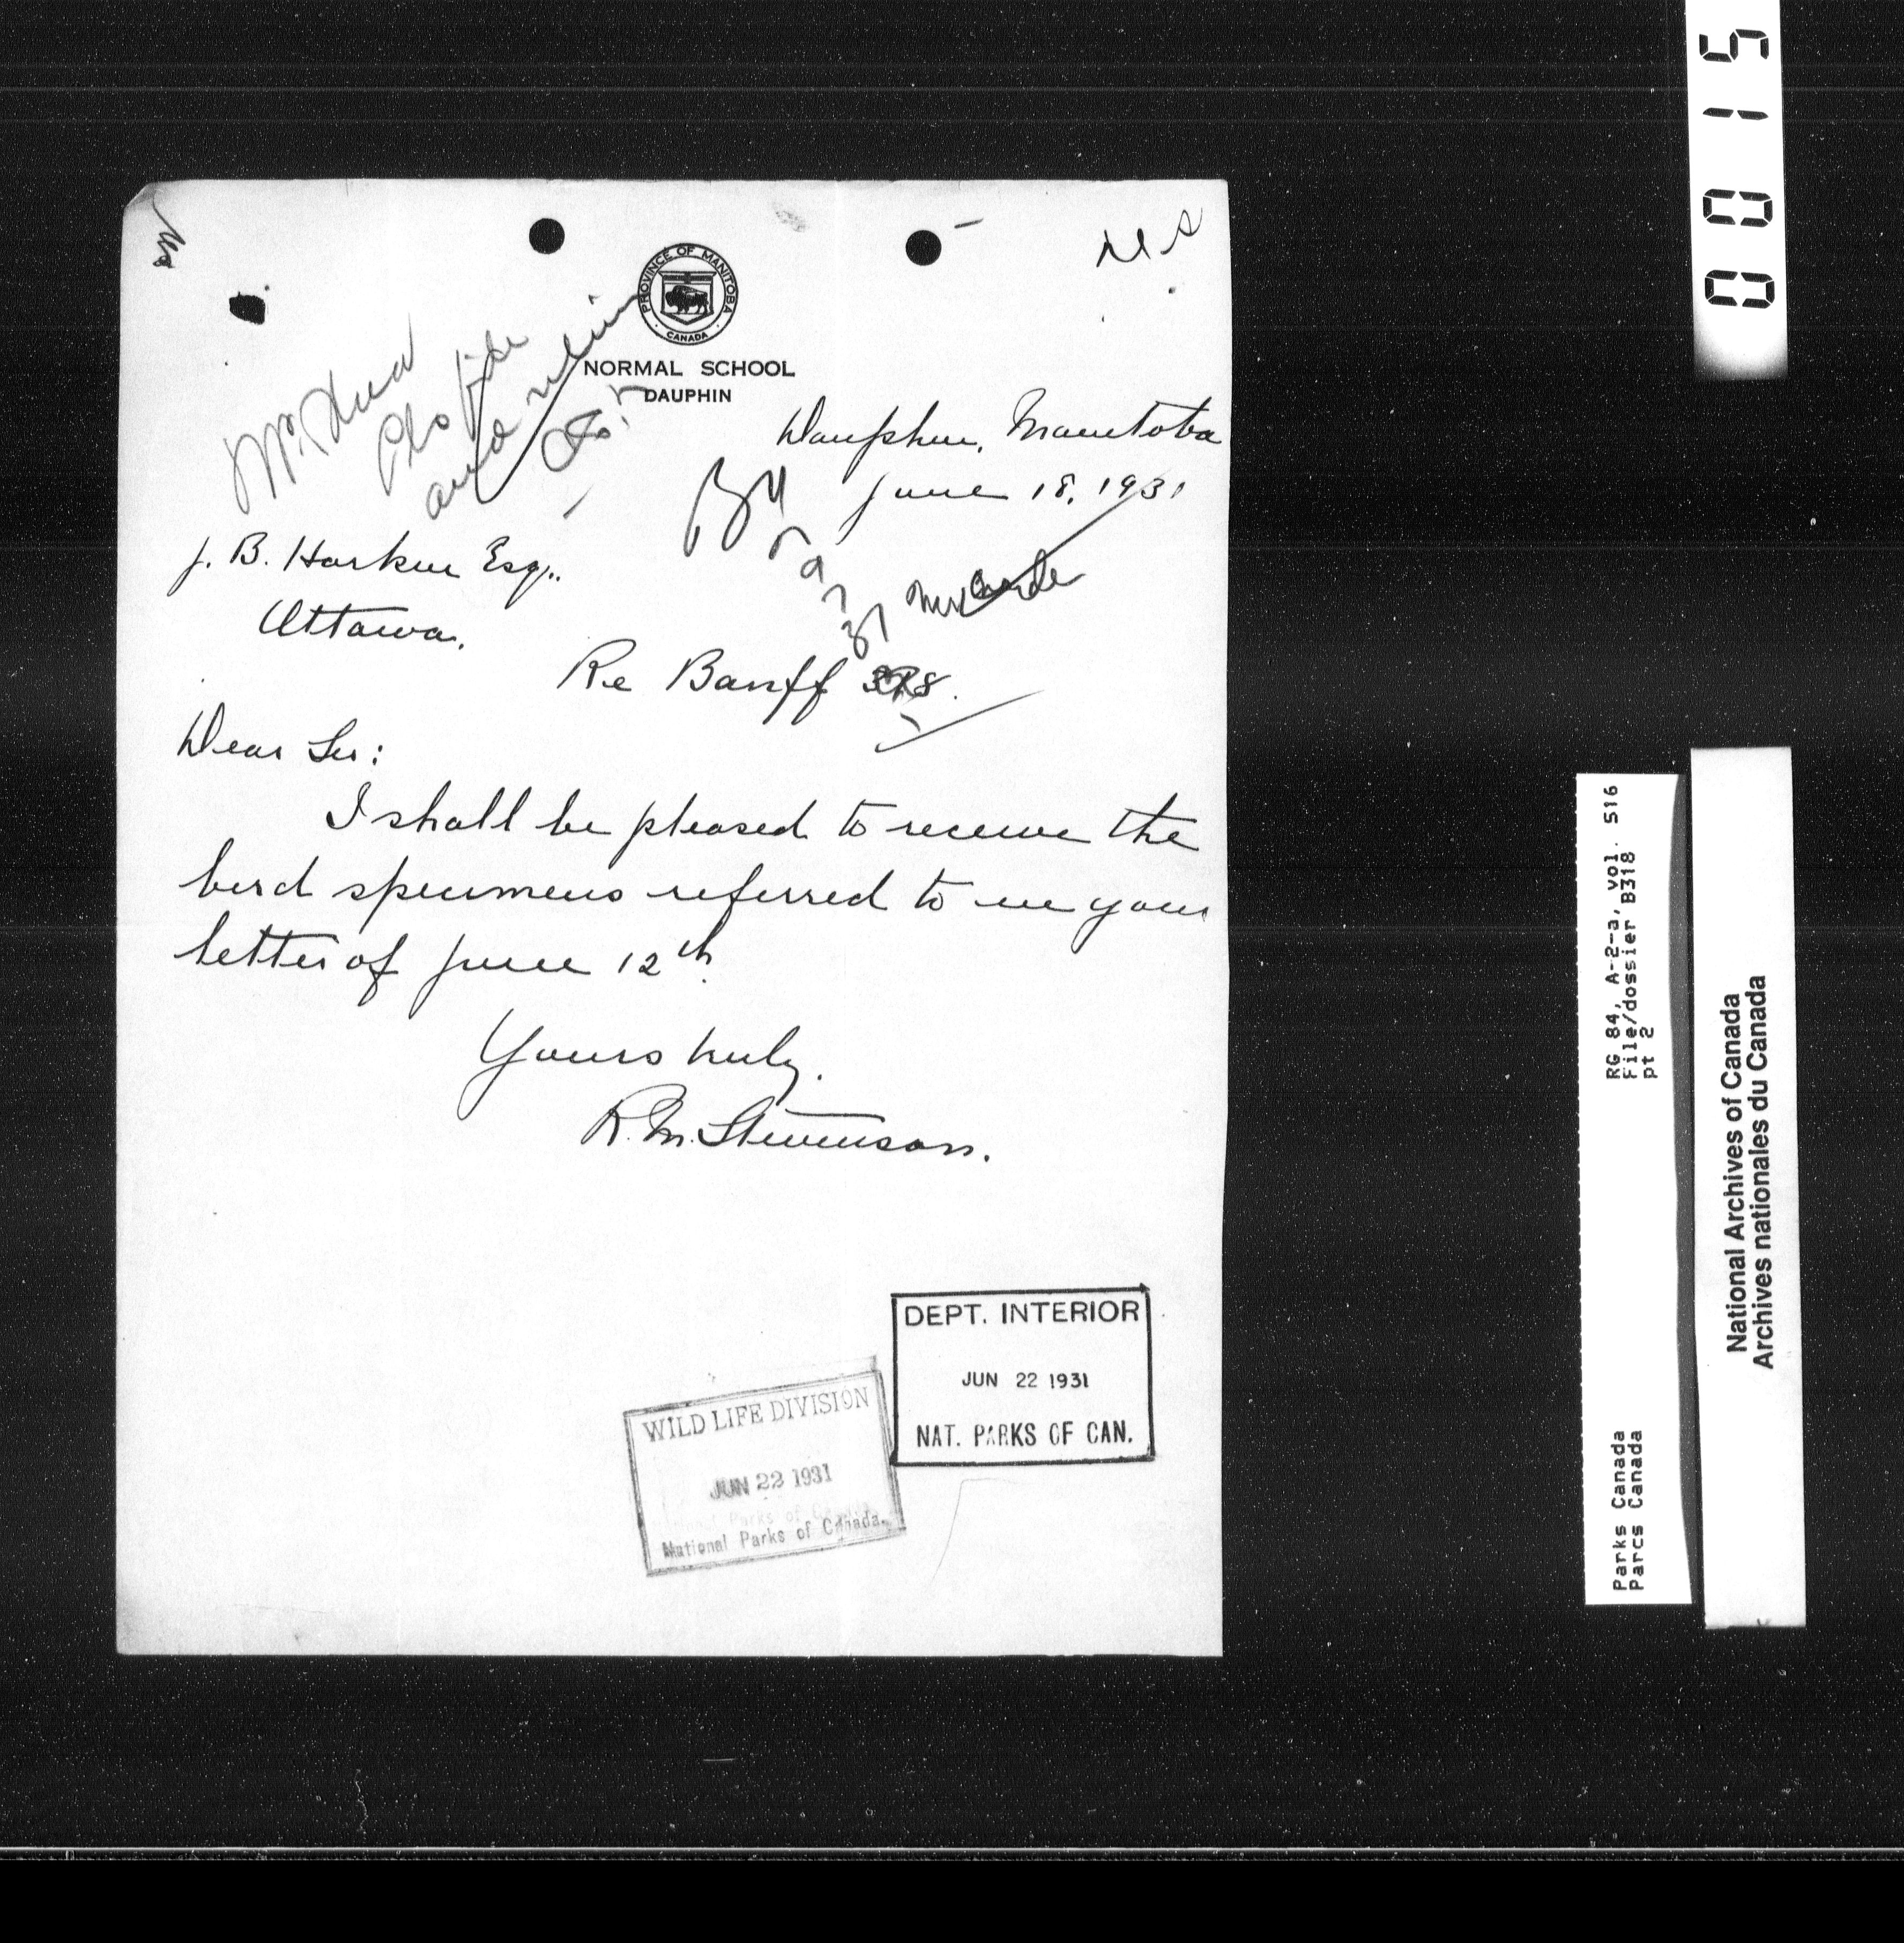 0015
PROVINCE OF MANITOBA
CANADA
NORMAL SCHOOL
DAUPHIN
Dauphin, Manitoba
June 18, 1931
Mr.
Pls file
and return
J. B. Harkin Esq..
Ottawa.
Re Banff
Dear Sir:
I shall be pleased to receive the
bird specimens referred to in your
letter of June 12th.
Yours truly.
R. M. Stevenson.
DEPT. INTERIOR
JUN 22 1931
NAT. PARKS OF CAN.
WILD LIFE DIVISION
JUN 22 1931
National Parks of Canada.
RG 84, A-2-a, vol. 516
File/dossier B318
pt 2
Parks Canada
Parcs Canada
National Archives of Canada
Archives nationales du Canada